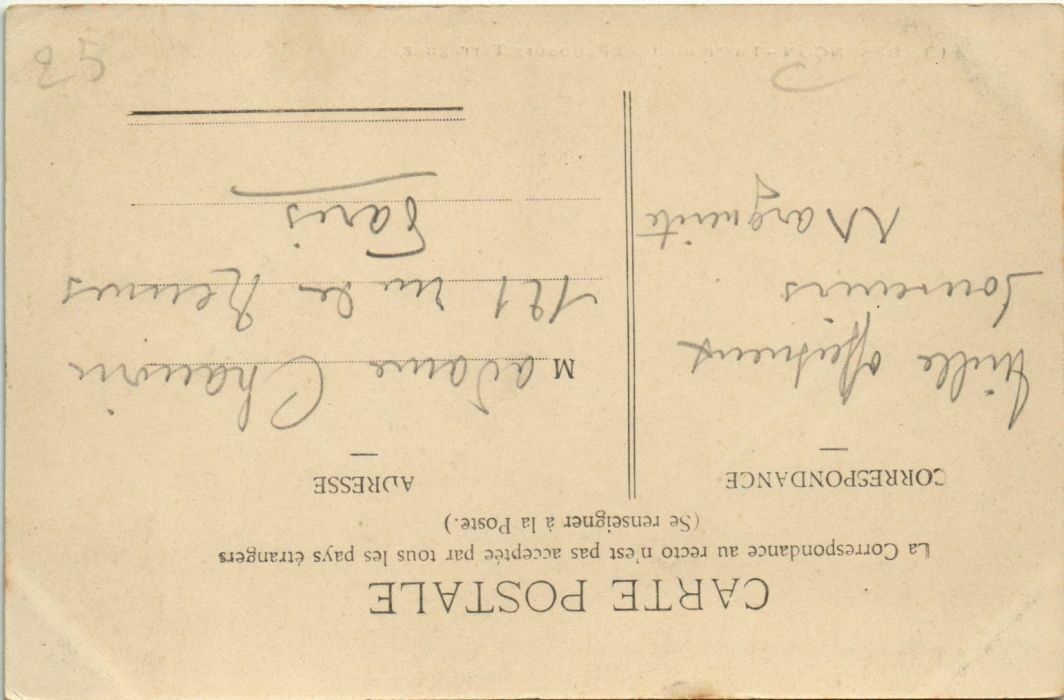 CARTE POSTALE
La Correspondance au recto n'est pas acceptée par tous les pays étrangers
(Se renseigner à la Poste.)
CORRESPONDANCE
Mille affectueux
Souvenirs
Marguerite
ADRESSE
Madame Chauvin
121 rue de Rennes
Paris